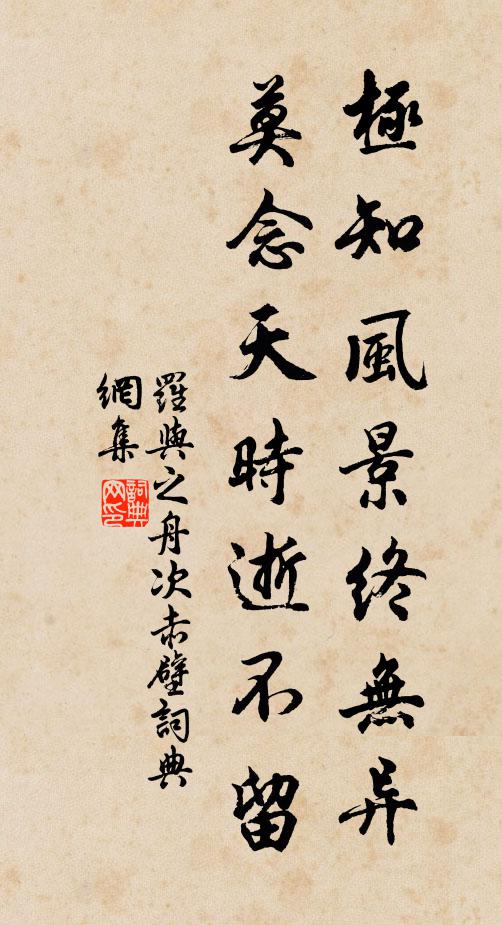 極知風景終無异
莫念天時逝不留
羅與之舟次赤壁詞典
網集
詞典网印